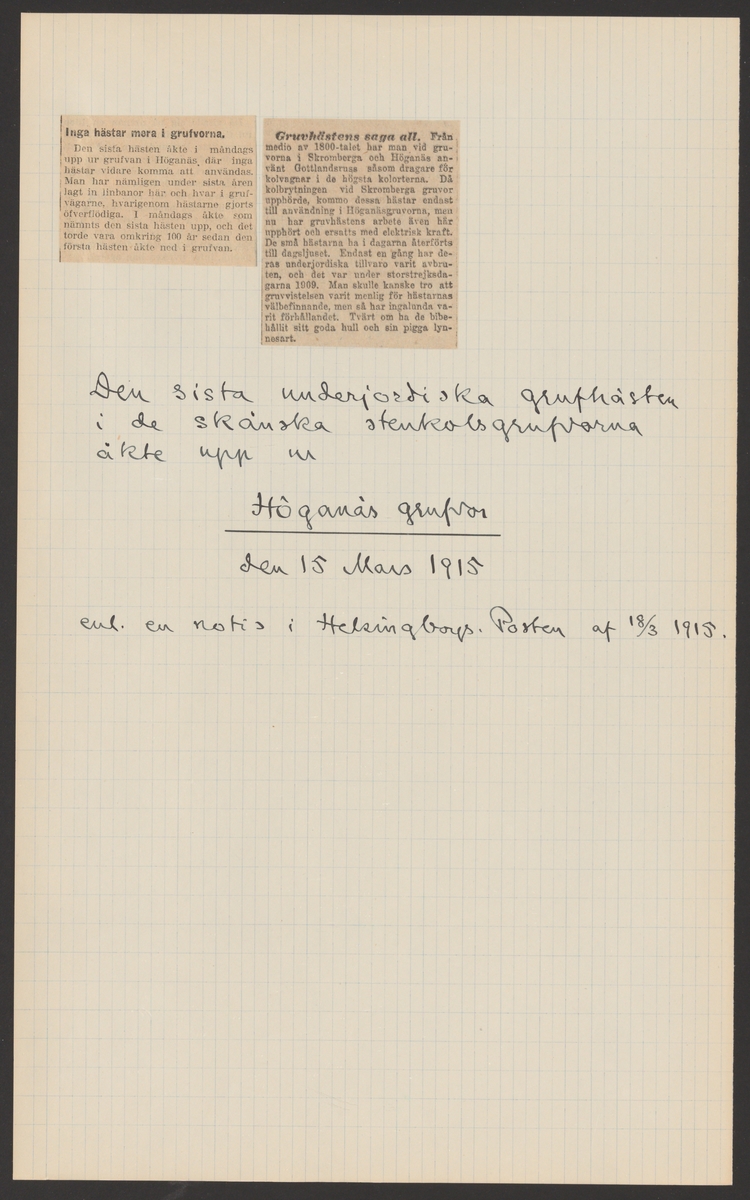 Inga hästar mera i grufvorna.
Den sista hästen åkte i måndags
upp ur grufvan i Höganäs, där inga
hästar vidare komma att användas.
Man har nämligen under sista åren
lagt in linbanor här och hvar i gruf-
vägarne, hvarigenom hästarne gjorts
öfverflödiga. I måndags åkte som
nämnts den sista hästen upp, och det
torde vara omkring 100 år sedan den
första hästen åkte ned i grufvan.
Gruvhästens saga all. Från
medio av 1800-talet har man vid gru-
vorna i Skromberga och Höganäs an-
vänt Gottlandsruss såsom dragare för
kolvagnar i de högsta kolorterna. Då
kolbrytningen vid Skromberga gruvor
upphörde, kommo dessa hästar endast
till användning i Höganäsgruvorna, men
nu har gruvhästens arbete även här
upphört och ersatts med elektrisk kraft.
De små hästarna ha i dagarna återförts
till dagsljuset. Endast en gång har de-
ras underjordiska tillvaro varit avbru-
ten, och det var under storstrejksda-
garna 1909. Man skulle kanske tro att
gruvvistelsen varit menlig för hästarnas
välbefinnande, men så har ingalunda va-
rit förhållandet. Tvärt om ha de bibe-
hållit sitt goda hull och sin pigga lyn-
nesart.
Den sista underjordiska grufhästen
i de skånska stenkolsgrufvorna
åkte upp ur
Höganäs grufvor
den 15 Mars 1915
enl. en notis i Helsingborgs. Posten af 18/3 1915.